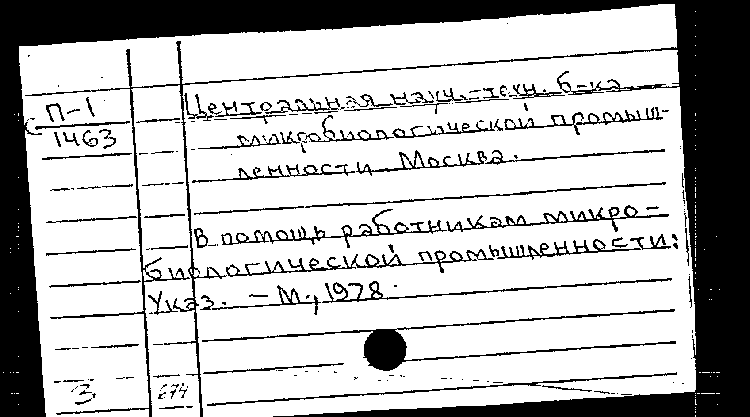 П-1
1463
Центральная науч.-техн. б-ка
микробиологической промыш-
ленности Москва.
В помощь работникам микро-
биологической промышленности:
Указ. - М., 1978.
3
674